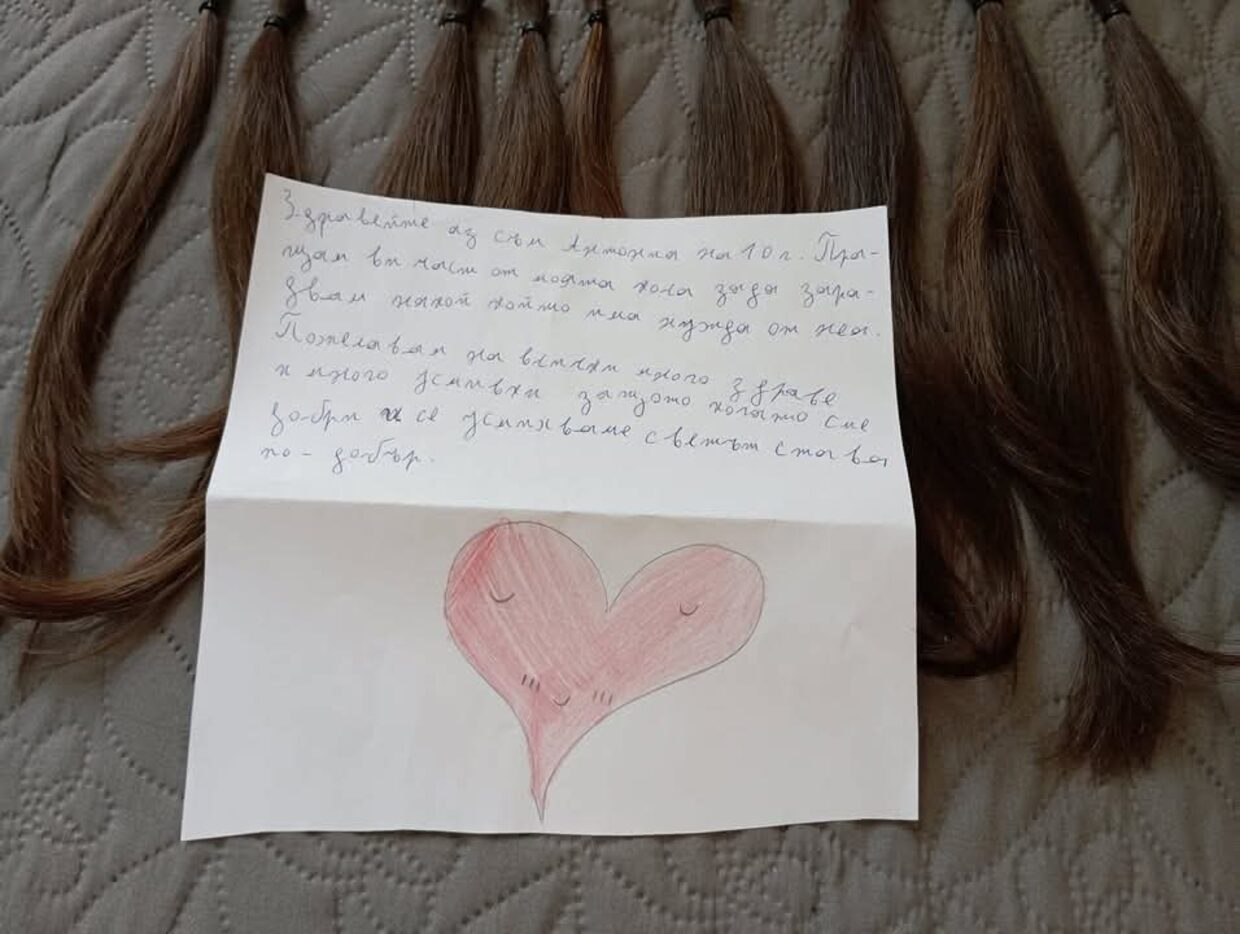 Здравейте аз съм Антония на 10 г. Пра-
щам ви част от моята коса зада зара-
двам някой който има нужда от нея.
Пожелавам на всички много здраве
и много усмивки защото когато сме
добри и се усмихваме светът става
по-добър.